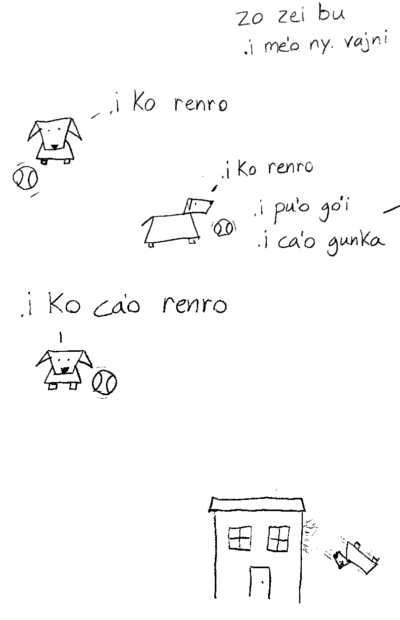 zo zei bu
.i me'o ny. vajni
.i ko renro
.i ko renro
.i pu'o go'i
.i ca'o gunka
.i ko ca'o renro